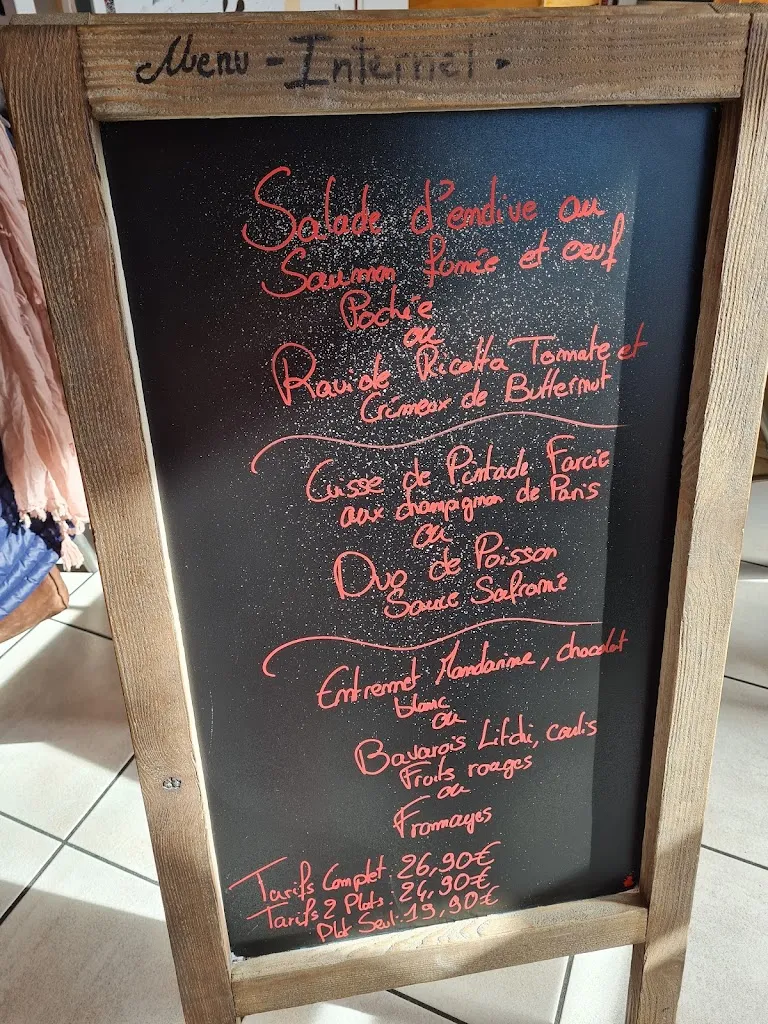 Menu - Internet -
Salade d'endive au
Saumon fumée et oeuf
Pochée
ou
Raviole Ricotta Tomate et
Crémeux de Butternut
Cuisse de Pintade Farcie
aux champignon de Paris
ou
Duo de Poisson
Sauce Safranée
Entremet Mandarine, chocolat
blanc
ou
Bavarois Litchi, coulis
Fruits rouges
ou
Fromages
Tarifs Complet : 26,90€
Tarifs 2 Plats : 24,90€
Plat Seul : 19,90€